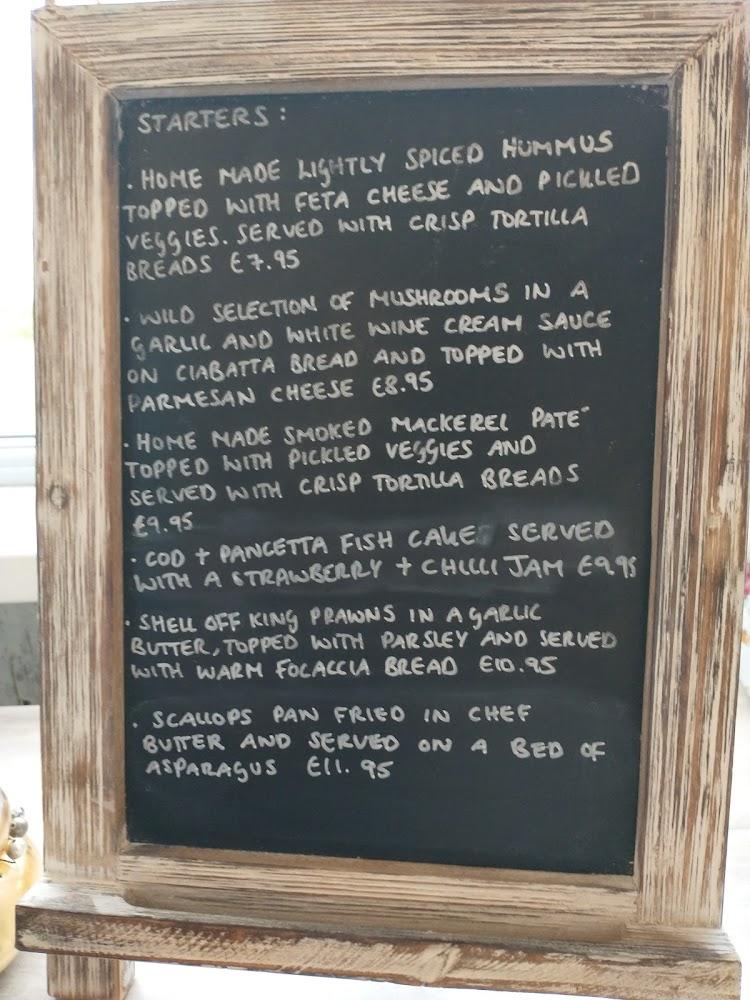 STARTERS:
· HOME MADE LIGHTLY SPICED HUMMUS
TOPPED WITH FETA CHEESE AND PICKLED
VEGGIES. SERVED WITH CRISP TORTILLA
BREADS £7.95
· WILD SELECTION OF MUSHROOMS IN A
GARLIC AND WHITE WINE CREAM SAUCE
ON CIABATTA BREAD AND TOPPED WITH
PARMESAN CHEESE £8.95
· HOME MADE SMOKED MACKEREL PATE
TOPPED WITH PICKLED VEGGIES AND
SERVED WITH CRISP TORTILLA BREADS
£9.95
· COD + PANCETTA FISH CAKE SERVED
WITH A STRAWBERRY + CHILLI JAM £9.95
· SHELL OFF KING PRAWNS IN A GARLIC
BUTTER, TOPPED WITH PARSLEY AND SERVED
WITH WARM FOCACCIA BREAD £10.95
· SCALLOPS PAN FRIED IN CHEF
BUTTER AND SERVED ON A BED OF
ASPARAGUS £11.95